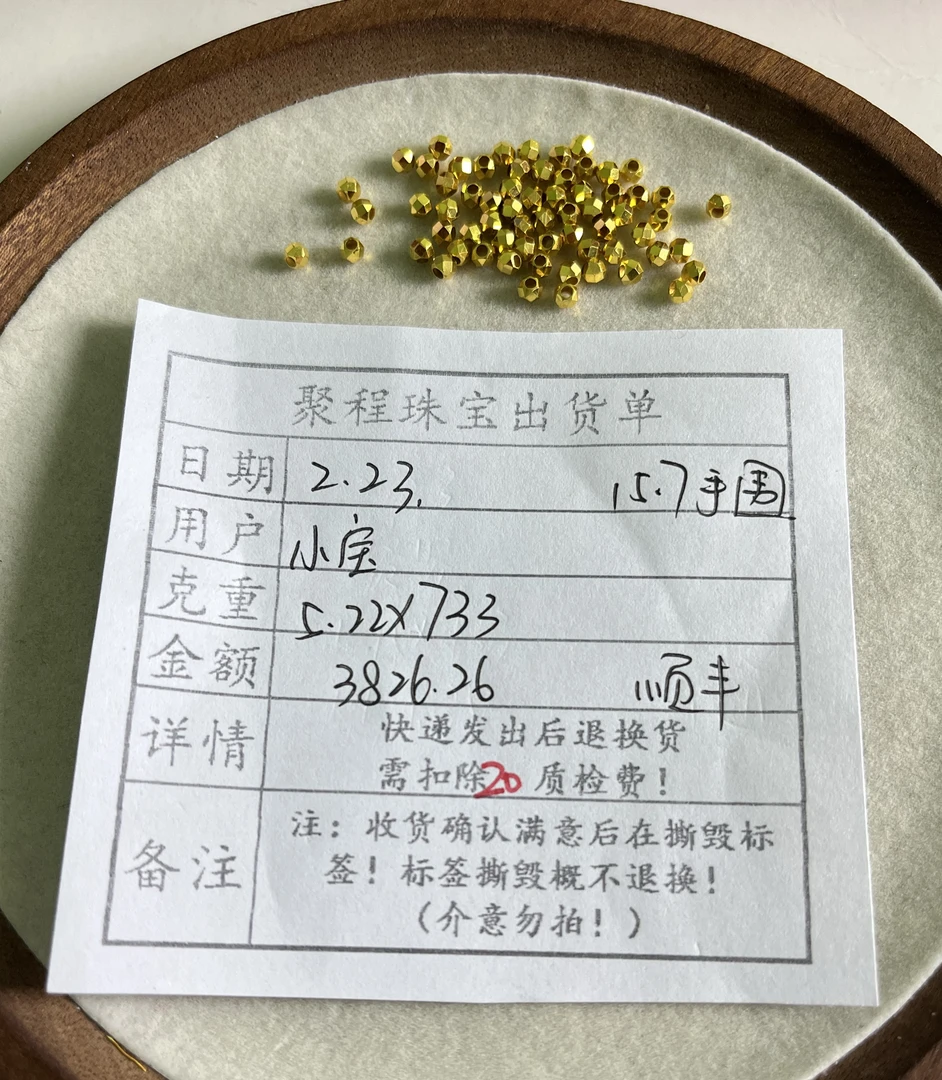 聚程珠宝出货单
日期 2.23. 15.7手围
用户 小宝
克重 5.22X733
金额 3826.26 顺丰
详情 快递发出后退换货
需扣除20质检费!
备注 注:收货确认满意后在撕毁标
签!标签撕毁概不退换!
(介意勿拍!)